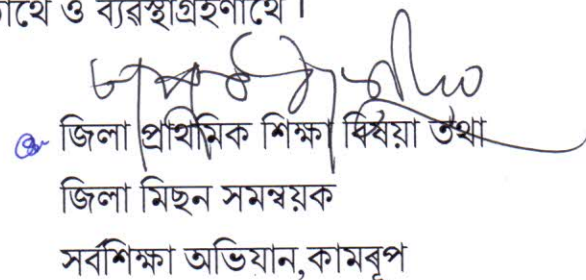 ও ব্যৱস্থাগ্ৰহণাৰ্থে ।
জিলা প্ৰাথমিক শিক্ষা বিষয়া তথা
জিলা মিছন সমন্বয়ক
সৰ্বশিক্ষা অভিযান,কামৰূপ